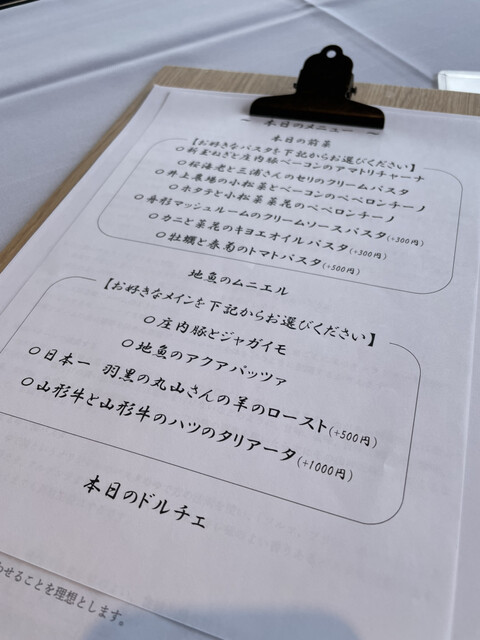 ～ 本日のメニュー ～
本日の前菜
【お好きなパスタを下記からお選びください】
○新玉ねぎと庄内豚ベーコンのアマトリチャーナ
○桜海老と三浦さんのセリのクリームパスタ
○井上農場の小松菜とベーコンのペペロンチーノ
○ホタテと小松菜菜花のペペロンチーノ
○舟形マッシュルームのクリームソースパスタ(+300円)
○カニと菜花のキヨエオイルパスタ(+300円)
○牡蠣と春菊のトマトパスタ(+500円)
地魚のムニエル
【お好きなメインを下記からお選びください】
○庄内豚とジャガイモ
○地魚のアクアパッツァ
○日本一 羽黒の丸山さんの羊のロースト(+500円)
○山形牛と山形牛のハツのタリアータ(+1000円)
本日のドルチェ
わせることを理想とします。